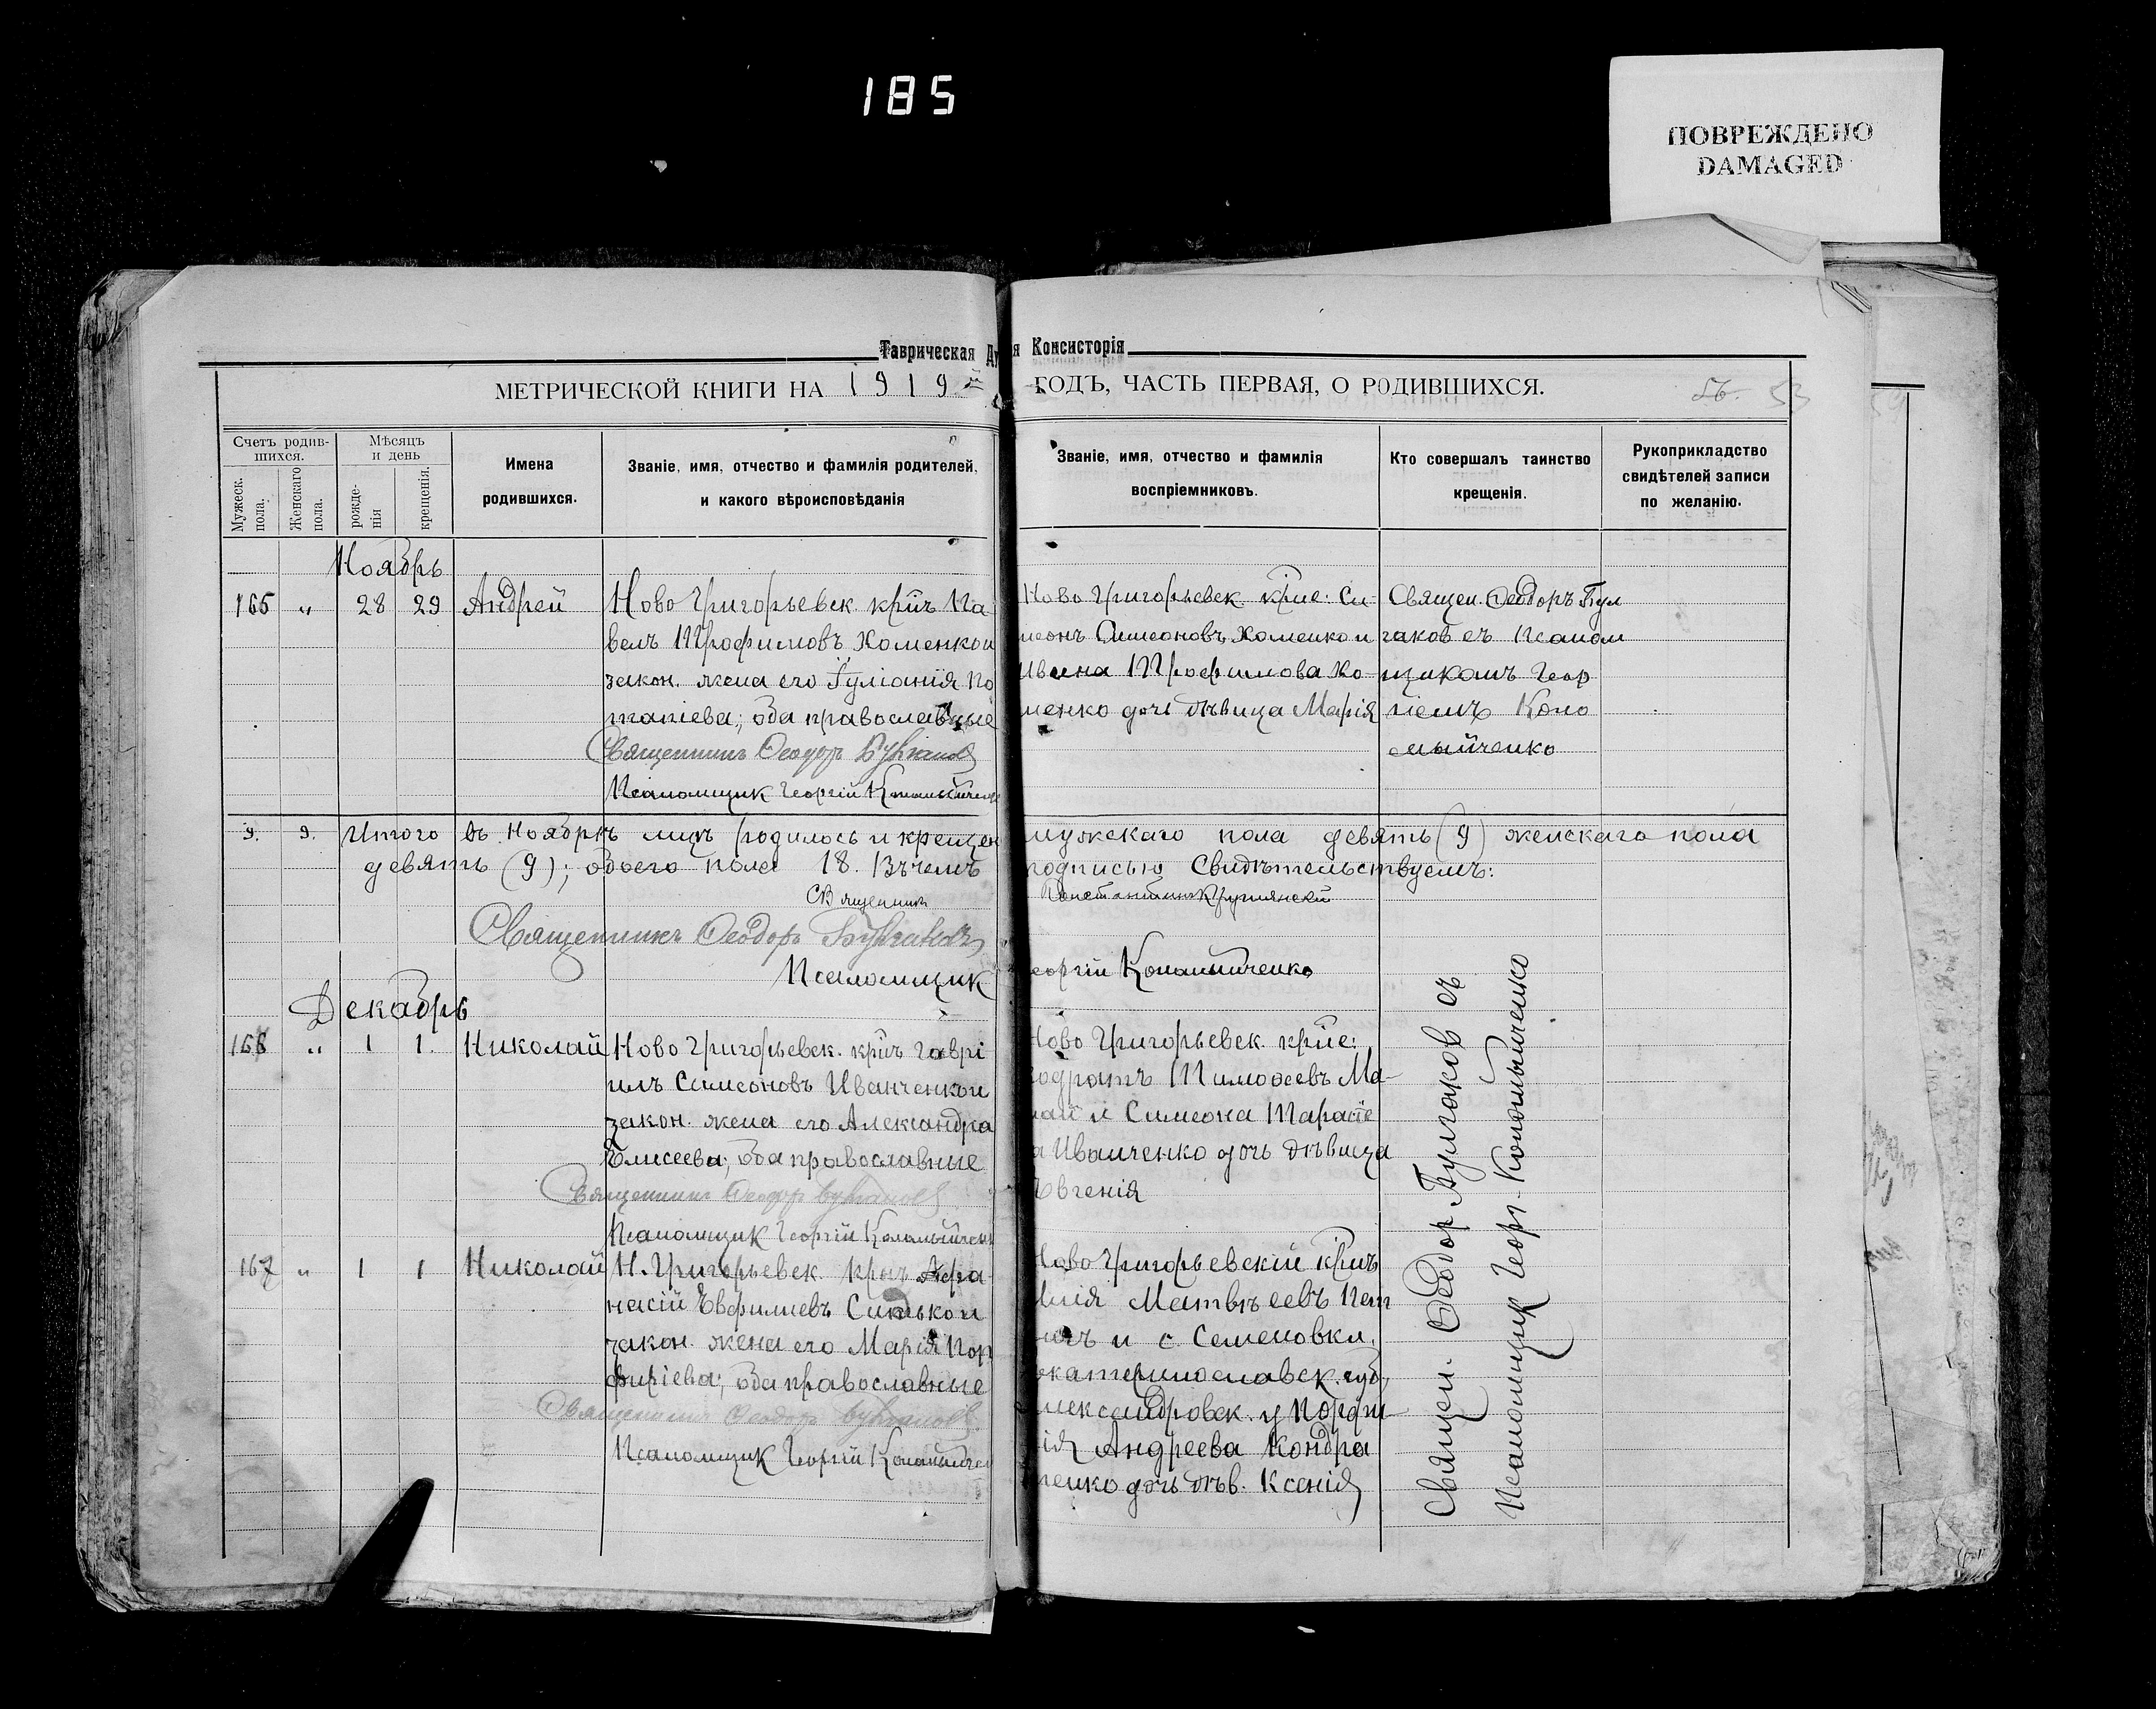 185
ПОВРЕЖДЕНО
DAMAGED
Таврическая Ду я Консисторія
МЕТРИЧЕСКОЙ КНИГИ НА 1919й ГОДЪ, ЧАСТЬ ПЕРВАЯ, О РОДИВШИХСЯ.
53
Счетъ родив-
шихся.
Мужеск. пола.
Женскаго пола.
Мѣсяцъ
и день
рожде-
нія
крещенія.
Имена
родившихся.
Званіе, имя, отчество и фамилія родителей,
и какого вѣроисповѣданія
Званіе, имя, отчество и фамилія
воспріемниковъ.
Кто совершалъ таинство
крещенія.
Рукоприкладство
свидѣтелей записи
по желанію.
Ноябрь
165 " 28 29 Андрей
Ново Григорьевск. крнъ Па
велъ Трофимовъ Хоменко и
закон. жена его Іуліанія По
тапіева; оба православные
Священникъ Ѳеодоръ Булгаковъ
Псаломщик Георгій
Ново Григорьевск. крне: Си-
меонъ Симеоновъ Хоменко и
Ивана Трофимова Хо-
менко дочь дѣвица Марія
Священ. Ѳеодоръ Бул
гаков съ Псалом
щикомъ Геор
гіемъ Коло
мыйченко
9. 9. Итого въ Ноябрѣ мцѣ родилось и крещен мужескаго пола девять (9) женскаго пола
девять (9); обоего пола 18. Въ чемъ подписью Свидѣтельствуемъ:
Священник Константин
Священникъ Ѳеодоръ Булгаковъ
Псаломщик еоргій Коломыйченко
Декабрь
166 " 1 1. Николай
Ново Григорьевск. крнъ Гаврі
илъ Симеоновъ Иванченко и
закон. жена его Александра
Елисеева; оба православные
Священникъ Ѳеодор Булгаковъ
Псаломщик Георгій Коломыйчен
Ново Григорьевск. крне:
одратъ Тимоѳеевъ Ма-
и Симеона Тарасіе
а Иванченко дочь дѣвица
Евгенія
167 " 1 1 Николай
Н. Григорьевск. крнъ Афа
насій Евфиміевъ Синько и
закон. жена его Марія Пор
фиріева; оба православные
Священникъ Ѳеодоръ Булгаковъ
Псаломщик Георгій
Ново Григорьевскій крнъ
Матвѣевъ Пет
и с. Семеновки,
екатеринославск. губ.
лександровск. у Порфи
ія Андреева Кондра
тенко дочь дѣв. Ксенія
Священ. Ѳеодор Булгаков съ
Псаломщик Георг. Коломыйченко